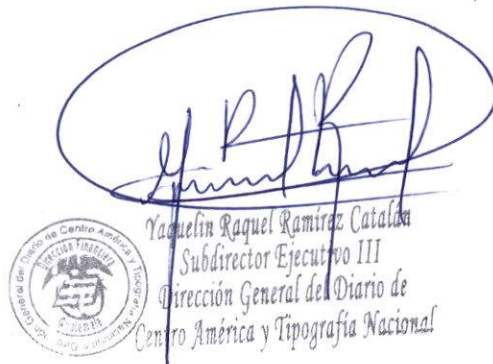 Yaquelin Raquel Ramírez Catalán
Subdirector Ejecutivo III
Dirección General del Diario de
Centro América y Tipografía Nacional
Dirección General del Diario de Centro América y Tipografía Nacional
Dirección Financiera
Guatemala